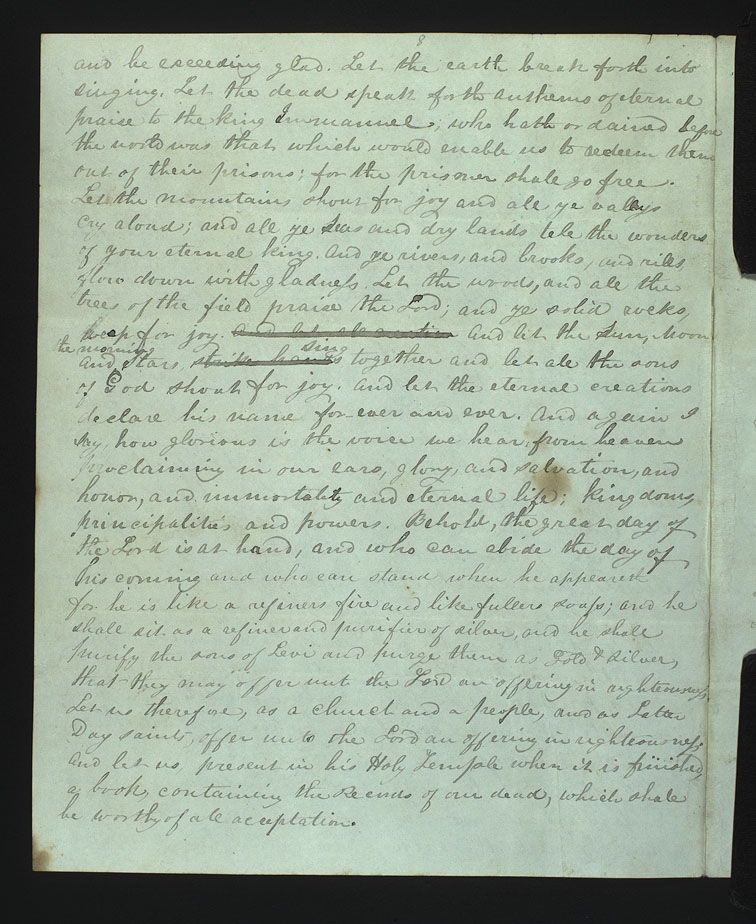 8
and be exceeding glad. Let the earth break forth into
singing. Let the dead speak forth anthems of eternal
praise to the king Immanuel; who hath ordained before
the world was that which would enable us to redeem them
out of their prisons; for the prisoner shall go free.
Let the mountains shout for joy and all ye valleys
cry aloud; and all ye Seas and dry lands tell the wonders
of your eternal king. And ye rivers, and brooks, and rills
flow down with gladness. Let the woods, and all the
trees of the field praise the Lord; and ye solid rocks,
weep for joy. and let all creation And let the Sun, Moon
the morning sing
and Stars strike hands together and let all the sons
of God shout for joy. And let the eternal creations
declare his name for ever and ever. And again I
say, how glorious is the voice we hear, from heaven
proclaiming in our ears, glory, and salvation, and
honor, and immortality and eternal life; kingdoms,
principalities and powers. Behold, the great day of
the Lord is at hand, and who can abide the day of
his coming and who can stand when he appeareth
for he is like a refiners fire and like fullers soap; and he
shall sit as a refiner and purifier of silver, and he shall
purify the sons of Levi and purge them as Gold & silver,
that they may offer unt the Lord an offering in righteousness,
Let us therefore, as a church and a people, and as Latter
Day saints, offer unto the Lord an offering in righteousness,
and let us, present in his Holy Temple when it is finished,
a book, containing the Records of our dead, which shall
be worthy of all acceptation.